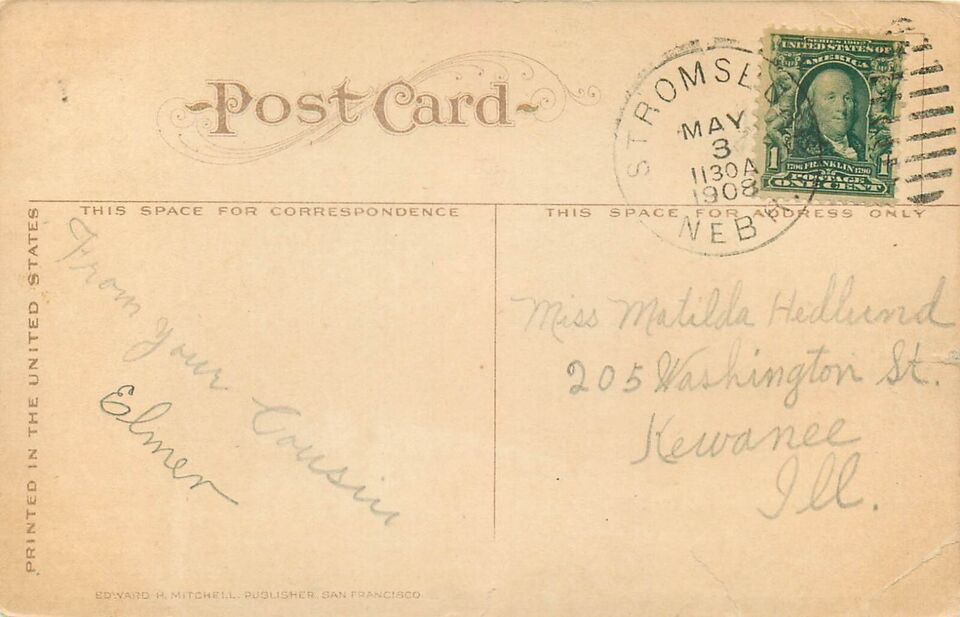 Post Card
STROMSB
MAY
3
1130A
1908
NEBR.
SERIES 1902
UNITED STATES OF
AMERICA
1 1
1706 FRANKLIN 1790
POSTAGE
ONE CENT
THIS SPACE FOR CORRESPONDENCE
THIS SPACE FOR ADDRESS ONLY
PRINTED IN THE UNITED STATES
From your Cousin
Elmer
Miss Matilda Hedlund
205 Washington St.
Kewanee
Ill.
EDWARD H. MITCHELL, PUBLISHER, SAN FRANCISCO